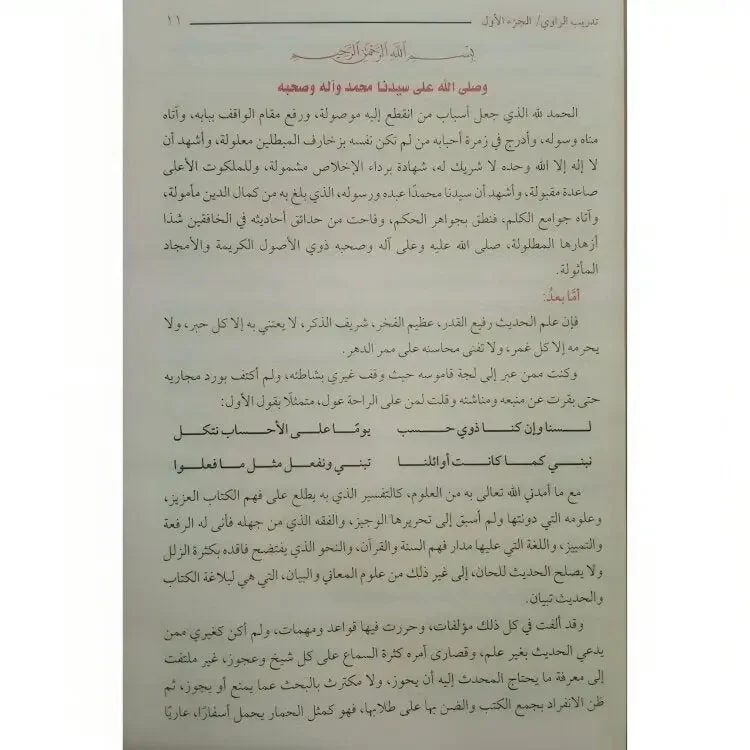 تدريب الراوي/ الجزء الأول ١١
بسم الله الرحمن الرحيم
وصلى الله على سيدنا محمد وآله وصحبه
الحمد لله الذي جعل أسباب من انقطع إليه موصولة، ورفع مقام الواقف ببابه، وآتاه
مناه وسوله، وأدرج في زمرة أحبابه من لم تكن نفسه بزخارف المبطلين معلولة، وأشهد أن
لا إله إلا الله وحده لا شريك له، شهادة برداء الإخلاص مشمولة، وللملكوت الأعلى
صاعدة مقبولة، وأشهد أن سيدنا محمدًا عبده ورسوله، الذي بلغ به من كمال الدين مأمولة،
وآتاه جوامع الكلم، فنطق بجواهر الحكم، وفاحت من حدائق أحاديثه في الخافقين شذا
أزهارها المطلولة، صلى الله عليه وعلى آله وصحبه ذوي الأصول الكريمة والأمجاد
المأثولة.
أمَّا بعدُ:
فإن علم الحديث رفيع القدر، عظيم الفخر، شريف الذكر، لا يعتني به إلا كل حبر، ولا
يحرمه إلا كل غمر، ولا تفنى محاسنه على ممر الدهر.
وكنت ممن عبر إلى لجة قاموسه حيث وقف غيري بشاطئه، ولم أكتف بورد مجاريه
حتى بقرت عن منبعه ومناشئه وقلت لمن على الراحة عول، متمثلًا بقول الأول:
لسنا وإن كنا ذوي حسب يومًا على الأحساب نتكل
نبني كما كانت أوائلنا تبني ونفعل مثل ما فعلوا
مع ما أمدني الله تعالى به من العلوم، كالتفسير الذي به يطلع على فهم الكتاب العزيز،
وعلومه التي دونتها ولم أسبق إلى تحريرها الوجيز، والفقه الذي من جهله فأنى له الرفعة
والتمييز، واللغة التي عليها مدار فهم السنة والقرآن، والنحو الذي يفتضح فاقده بكثرة الزلل
ولا يصلح الحديث للحان، إلى غير ذلك من علوم المعاني والبيان، التي هي لبلاغة الكتاب
والحديث تبيان.
وقد ألفت في كل ذلك مؤلفات، وحررت فيها قواعد ومهمات، ولم أكن كغيري ممن
يدعي الحديث بغير علم، وقصارى أمره كثرة السماع على كل شيخ وعجوز، غير ملتفت
إلى معرفة ما يحتاج المحدث إليه أن يحوز، ولا مكترث بالبحث عما يمنع أو يجوز، ثم
ظن الانفراد بجمع الكتب والضن بها على طلابها، فهو كمثل الحمار يحمل أسفارًا، عاريًا